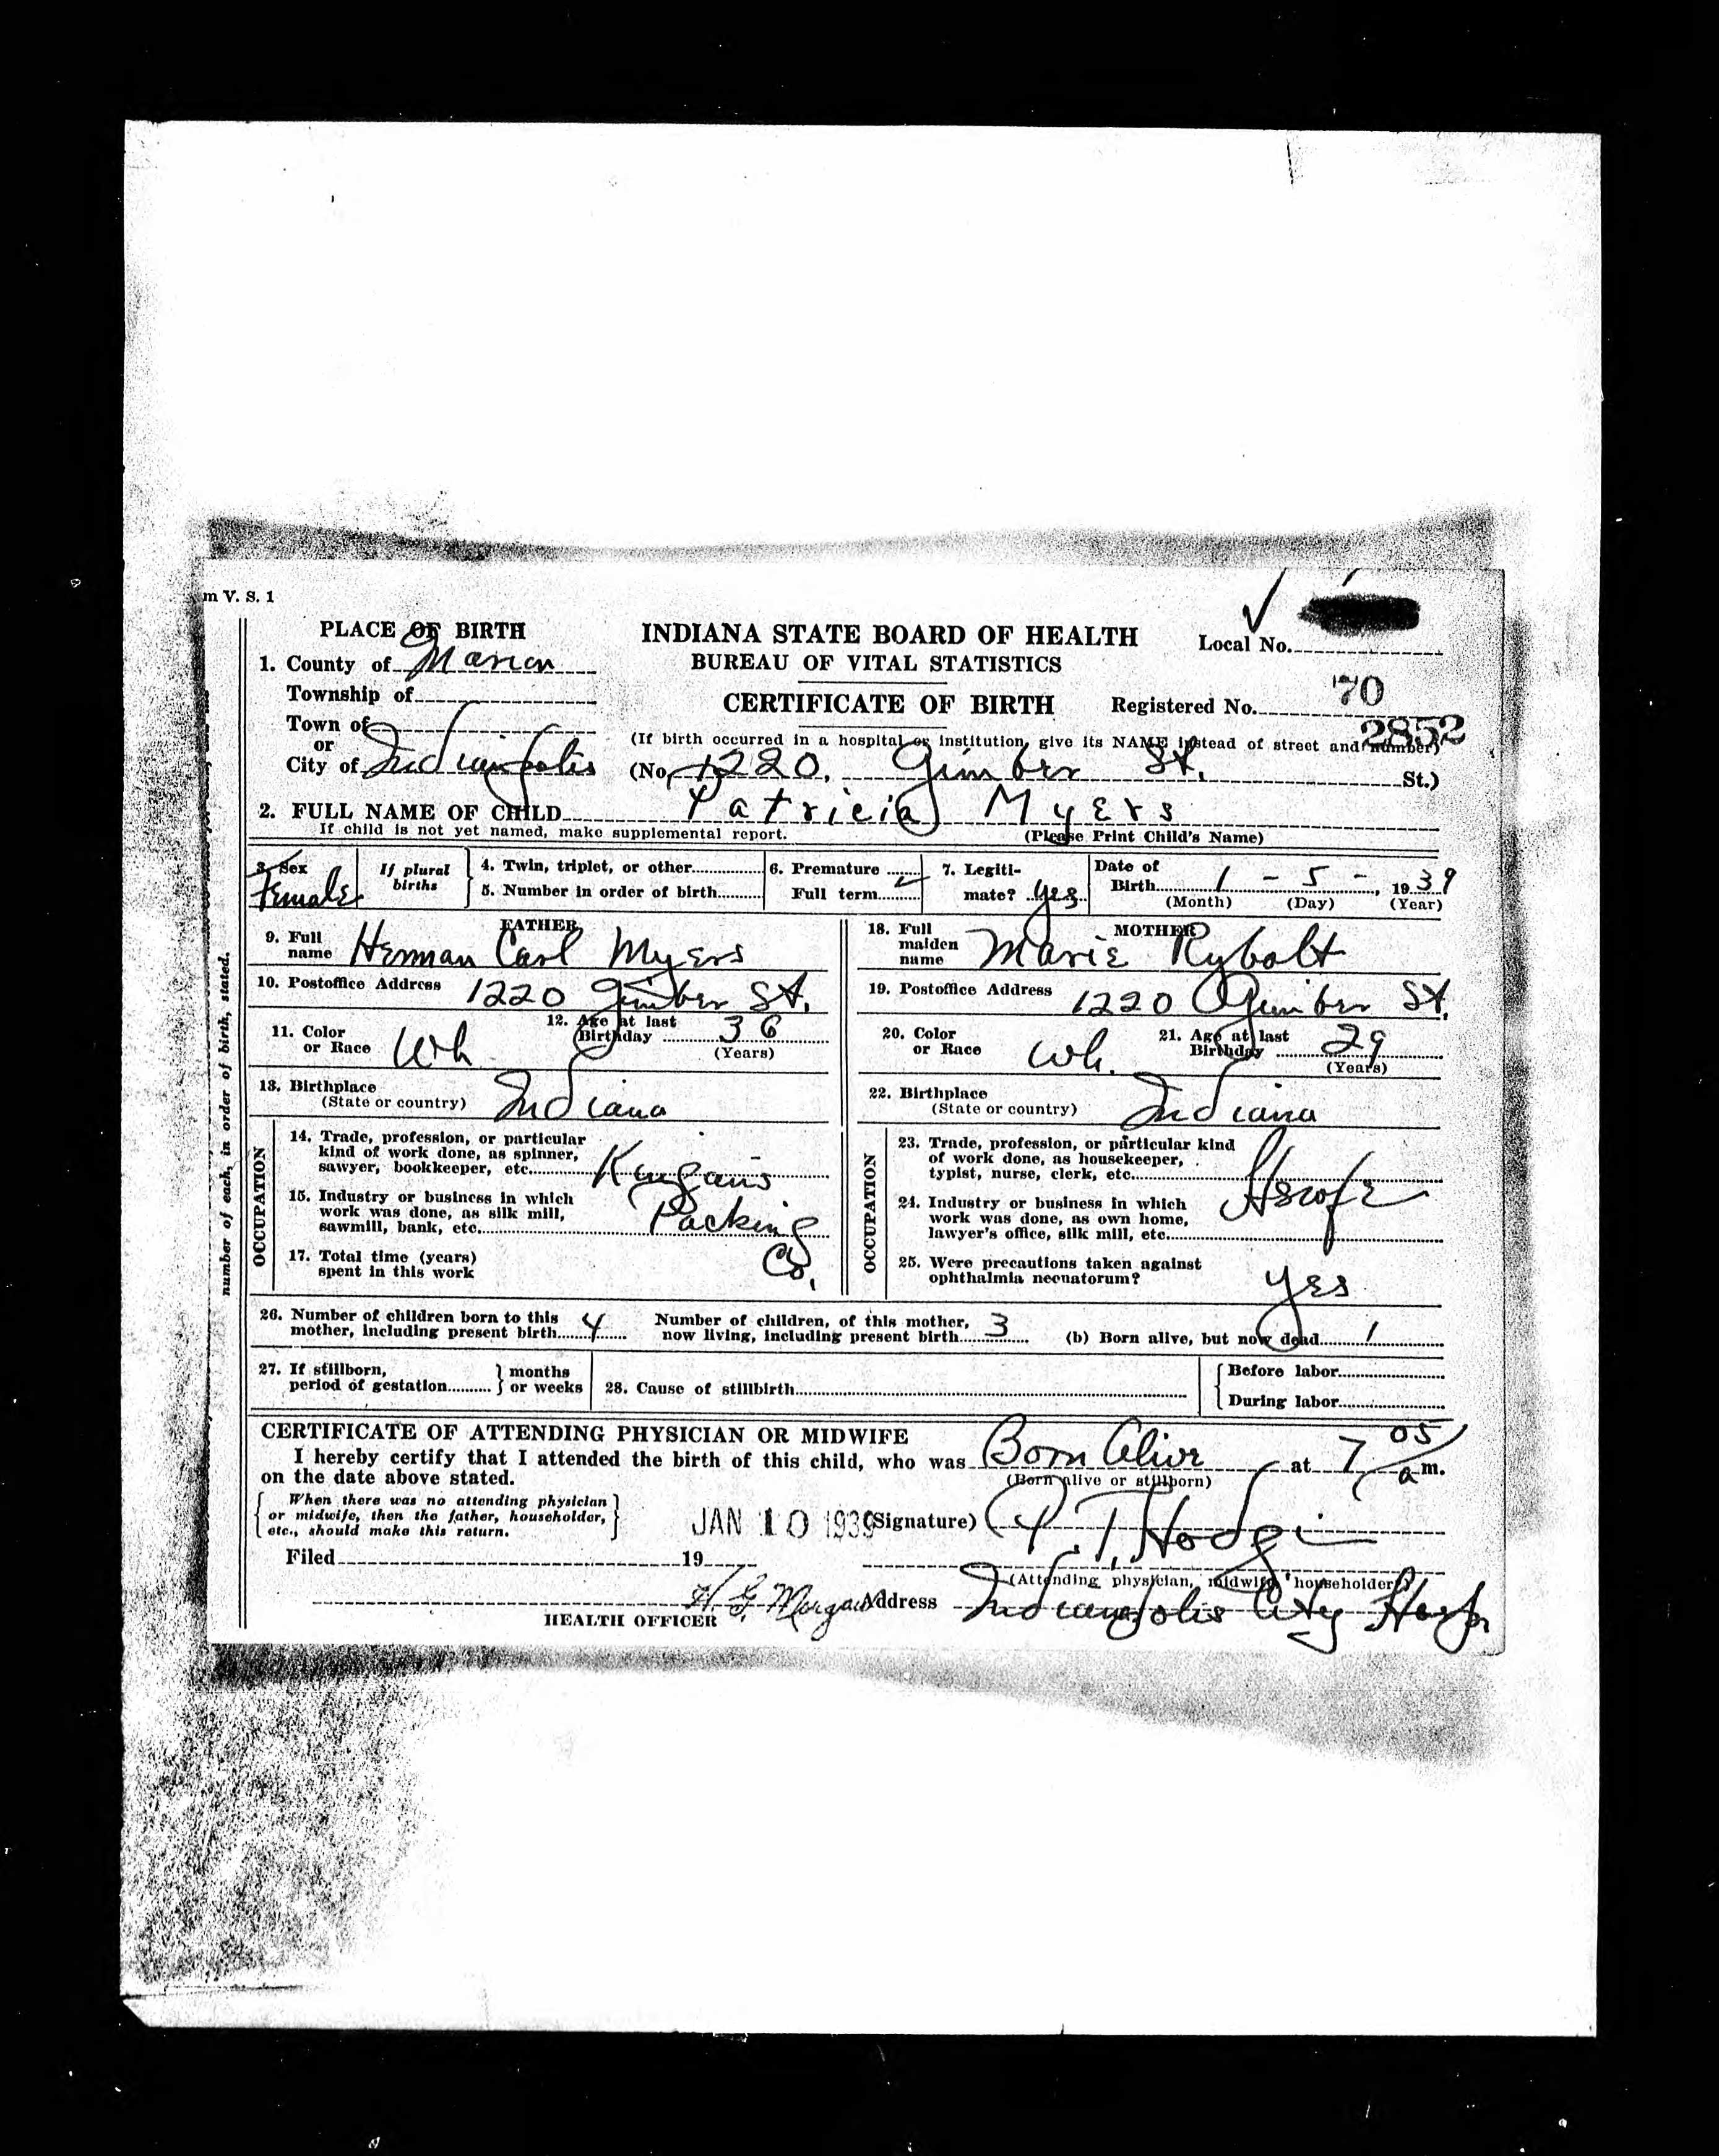 m V. S. 1
PLACE OF BIRTH
INDIANA STATE BOARD OF HEALTH
Local No.
1. County of Marion
BUREAU OF VITAL STATISTICS
Township of
CERTIFICATE OF BIRTH
Registered No. 70
2852
Town of
or
(If birth occurred in a hospital or institution, give its NAME instead of street and number)
City of Indianapolis (No. 1220. Gimber St. St.)
2. FULL NAME OF CHILD Patricia Myers
If child is not yet named, make supplemental report. (Please Print Child's Name)
3. Sex Female
If plural births
4. Twin, triplet, or other
5. Number in order of birth
6. Premature
Full term ✓
7. Legitimate? yes
Date of Birth 1 - 5 -, 1939
(Month) (Day) (Year)
FATHER
9. Full name Herman Carl Myers
10. Postoffice Address 1220 Gimber St.
11. Color or Race Wh
12. Age at last Birthday 36 (Years)
13. Birthplace (State or country) Indiana
OCCUPATION
14. Trade, profession, or particular kind of work done, as spinner, sawyer, bookkeeper, etc. Kingans
15. Industry or business in which work was done, as silk mill, sawmill, bank, etc. Packing
17. Total time (years) spent in this work Co.
MOTHER
18. Full maiden name Marie Rybolt
19. Postoffice Address 1220 Gimber St.
20. Color or Race Wh.
21. Age at last Birthday 29 (Years)
22. Birthplace (State or country) Indiana
OCCUPATION
23. Trade, profession, or particular kind of work done, as housekeeper, typist, nurse, clerk, etc. Hswfe
24. Industry or business in which work was done, as own home, lawyer's office, silk mill, etc.
25. Were precautions taken against ophthalmia neonatorum? yes
26. Number of children born to this mother, including present birth 4
Number of children, of this mother, now living, including present birth 3
(b) Born alive, but now dead 1
27. If stillborn, period of gestation months or weeks
28. Cause of stillbirth
Before labor
During labor
CERTIFICATE OF ATTENDING PHYSICIAN OR MIDWIFE
I hereby certify that I attended the birth of this child, who was Born Alive at 7 05 a m.
(Born alive or stillborn)
on the date above stated.
When there was no attending physician or midwife, then the father, householder, etc., should make this return.
JAN 10 1939
(Signature) P. T. Hodgin
(Attending physician, midwife, householder)
Filed 19
H. G. Morgan
HEALTH OFFICER
Address Indianapolis City Hosp
number of each, in order of birth, stated.